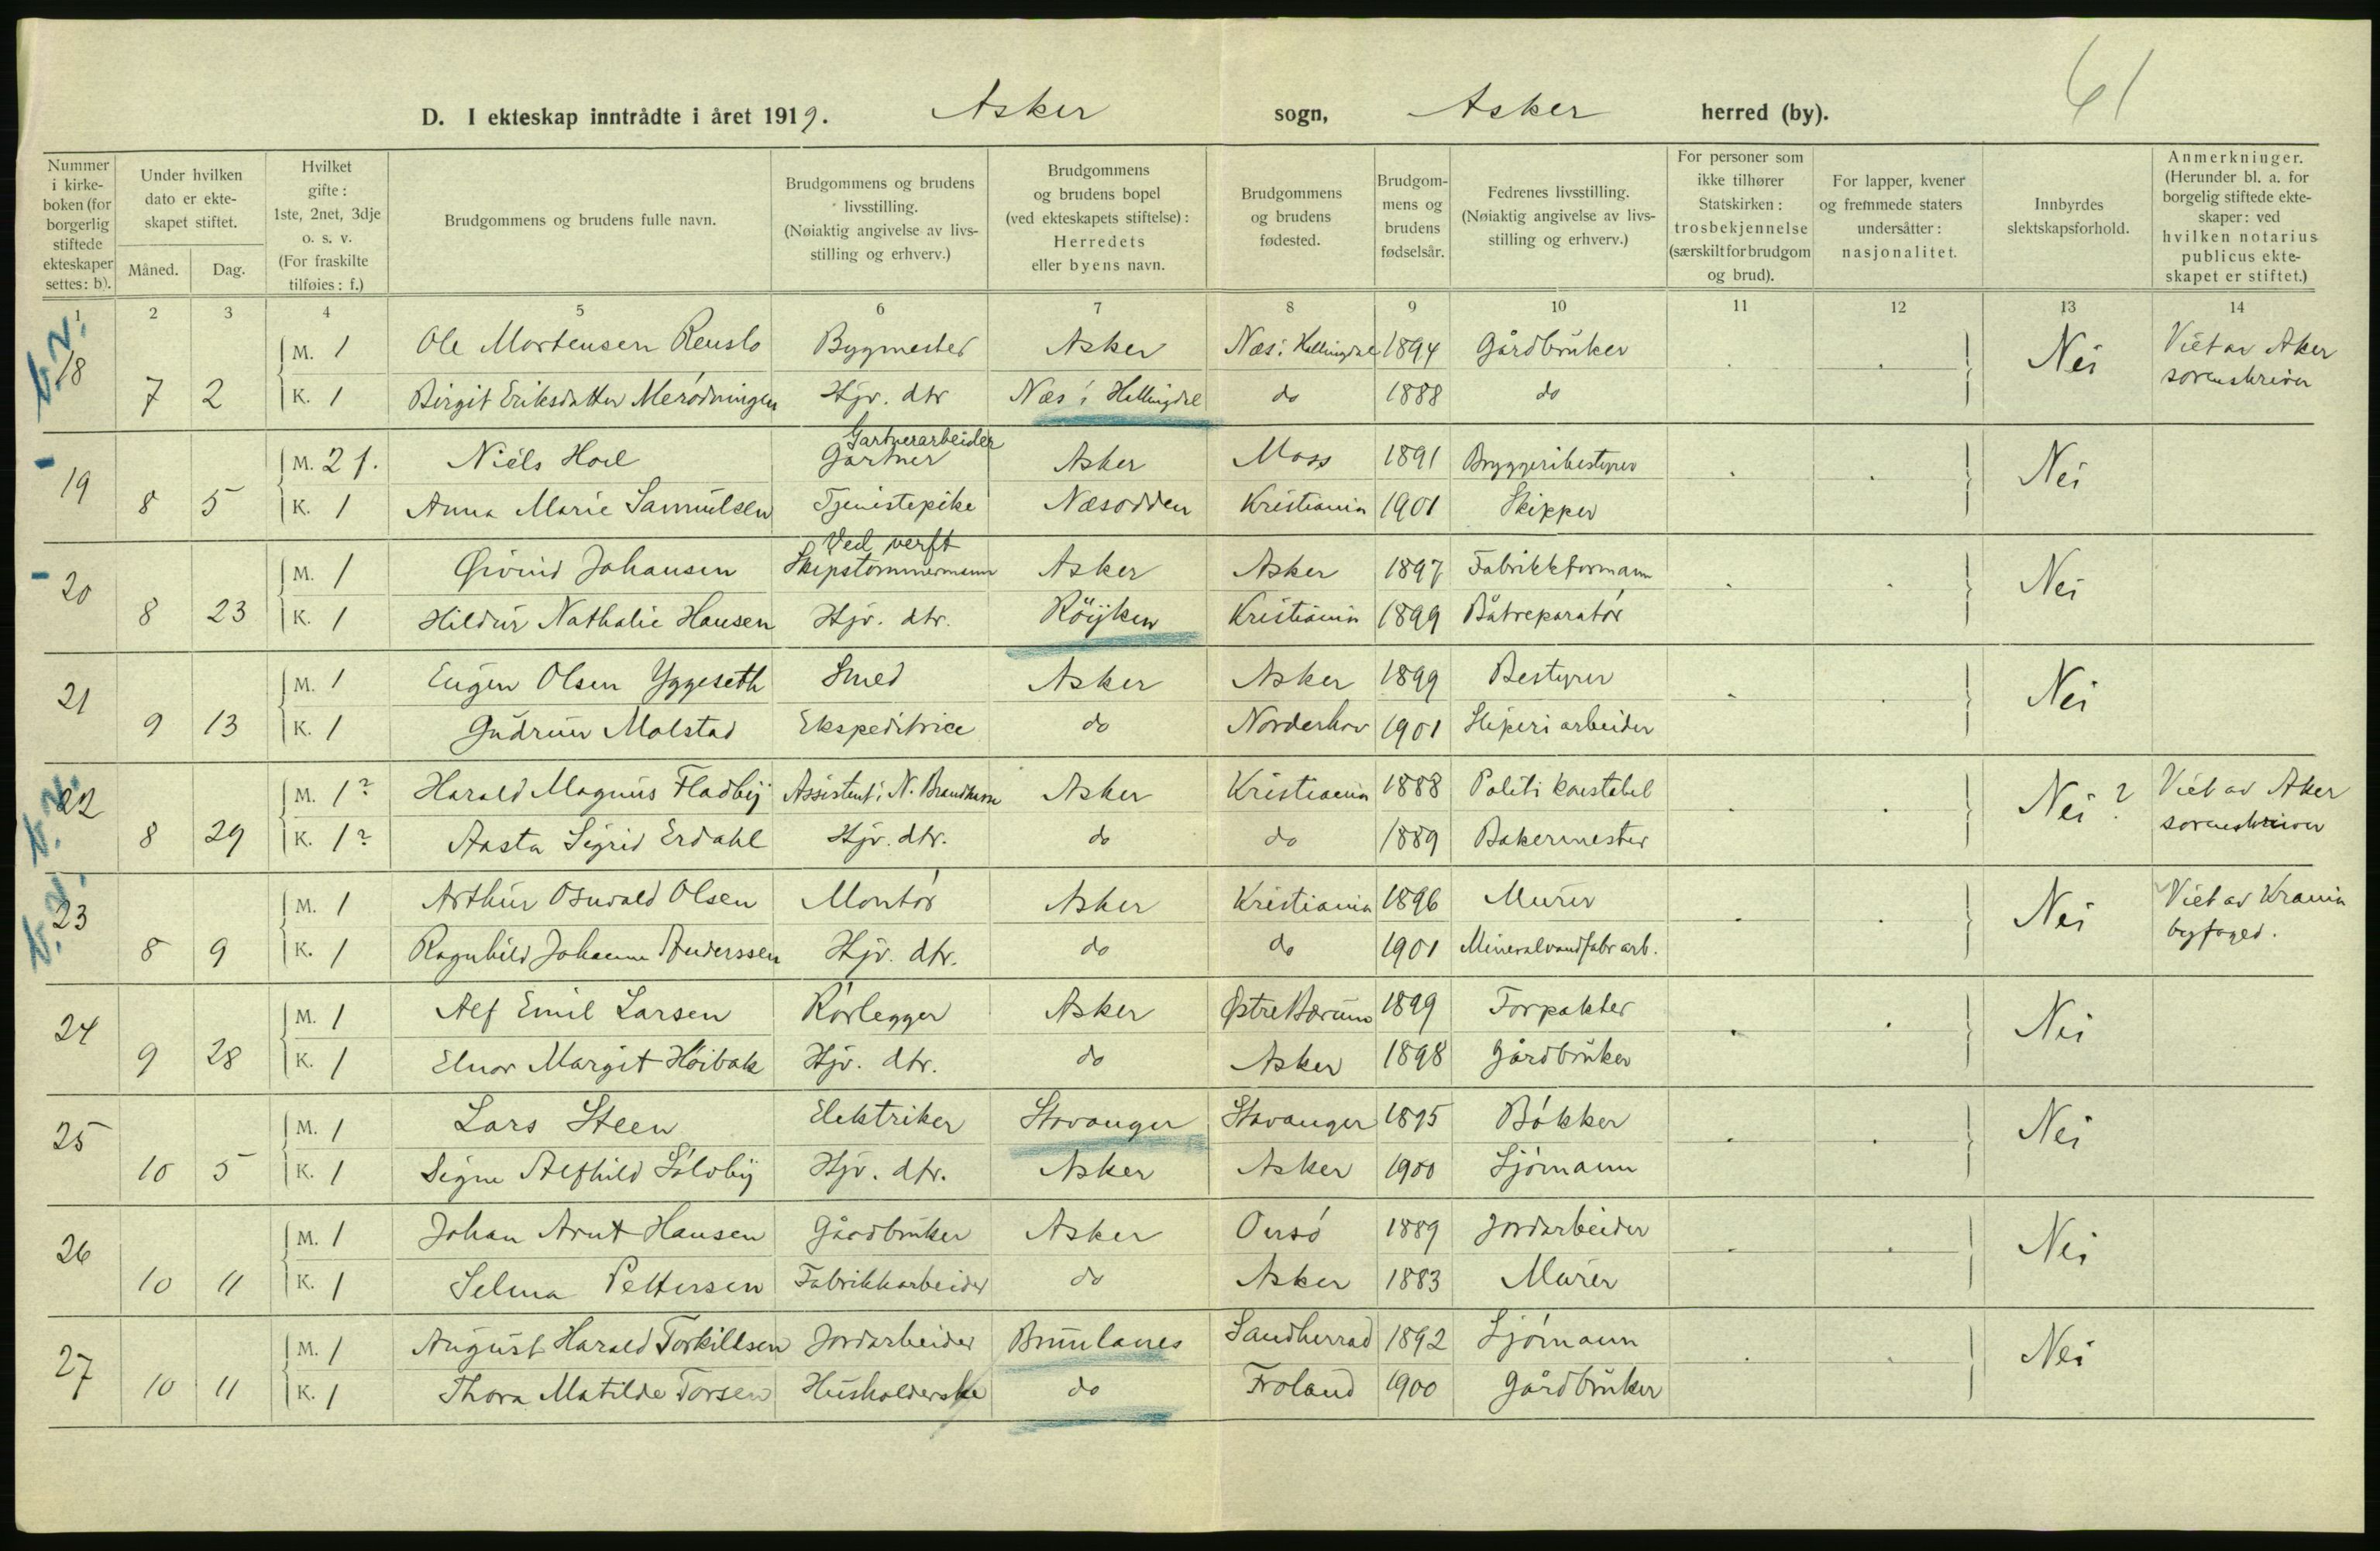 61
D. I ekteskap inntrådte i året 1919. Asker sogn, Asker herred (by).
Nummer i kirke-boken (for borgerlig stiftede ekteskaper settes: b).
Under hvilken dato er ekte-skapet stiftet.
Måned. Dag.
Hvilket gifte: 1ste, 2net, 3dje o. s. v. (For fraskilte tilføies: f.)
Brudgommens og brudens fulle navn.
Brudgommens og brudens livsstilling. (Nøiaktig angivelse av livs-stilling og erhverv.)
Brudgommens og brudens bopel (ved ekteskapets stiftelse): Herredets eller byens navn.
Brudgommens og brudens fødested.
Brudgom-mens og brudens fødselsår.
Fedrenes livsstilling. (Nøiaktig angivelse av livs-stilling og erhverv.)
For personer som ikke tilhører Statskirken: trosbekjennelse (særskilt for brudgom og brud).
For lapper, kvener og fremmede staters undersåtter: nasjonalitet.
Innbyrdes slektskapsforhold.
Anmerkninger. (Herunder bl. a. for borgelig stiftede ekte-skaper: ved hvilken notarius publicus ekte-skapet er stiftet.)
1 2 3 4 5 6 7 8 9 10 11 12 13 14
18 M. 1 Ole Mortensen Renslo Bygmester Asker Næs i Hallingdal 1894 Gårdbruker Nei Viet av Aker
7 2 K. 1 Birgit Eriksdatter Merødningen Hjv. dtr Næs i Hallingdal do 1888 do sorenskriver
Gartnerarbeider
19 M. 2 f. Niels Hoel Gartner Asker Moss 1891 Bryggeribestyrer Nei
8 5 K. 1 Anna Marie Samuelsen Tjenistepike Næsodden Kristiania 1901 Skipper
Ved verft
20 M. 1 Øivind Johansen Skipstømmermann Asker Asker 1897 Fabrikkformann Nei
8 23 K. 1 Hildur Nathalie Hansen Hjv. dtr. Röyken Kristiania 1899 Båtreparatør
21 M. 1 Eugen Olsen Yggeseth Smed Asker Asker 1899 Bestyrer Nei
9 13 K. 1 Gudrun Molstad Ekspeditrice do Norderhov 1901 Sliperiarbeider
22 M. 1? Harald Magnus Fladby Assistent i N. Brandkasse Asker Kristiania 1888 Politi konstabel Nei ? Viet av Aker
8 29 K. 1? Aasta Sigrid Erdahl Hjv. dtr. do do 1889 Bakermester sorenskriver
23 M. 1 Arthur Osvald Olsen Montør Asker Kristiania 1896 Murer Nei Viet av Krania
8 9 K. 1 Ragnhild Johanne Anderssen Hjv. dtr. do do 1901 Mineralvandfabr arb. byfoged.
24 M. 1 Alf Emil Larsen Rørlegger Asker Østre Bærum 1899 Forpakter Nei
9 28 K. 1 Elnor Margit Høibak Hjv. dtr. do Asker 1898 Gårdbruker
25 M. 1 Lars Steen Elektriker Stavanger Stavanger 1895 Bøkker Nei
10 5 K. 1 Signe Alfhild Sólvby Hjv. dtr. Asker Asker 1900 Sjømann
26 M. 1 Johan Arnt Hansen Gårdbruker Asker Onsø 1889 Jordarbeider Nei
10 11 K. 1 Selma Pettersen Fabrikkarbeider do Asker 1883 Murer
27 M. 1 August Harald Torkildsen Jordarbeider Brunlanes Sandherrad 1892 Sjømann Nei
10 11 K. 1 Thora Matilde Torsen Husholderske do Froland 1900 Gårdbruker